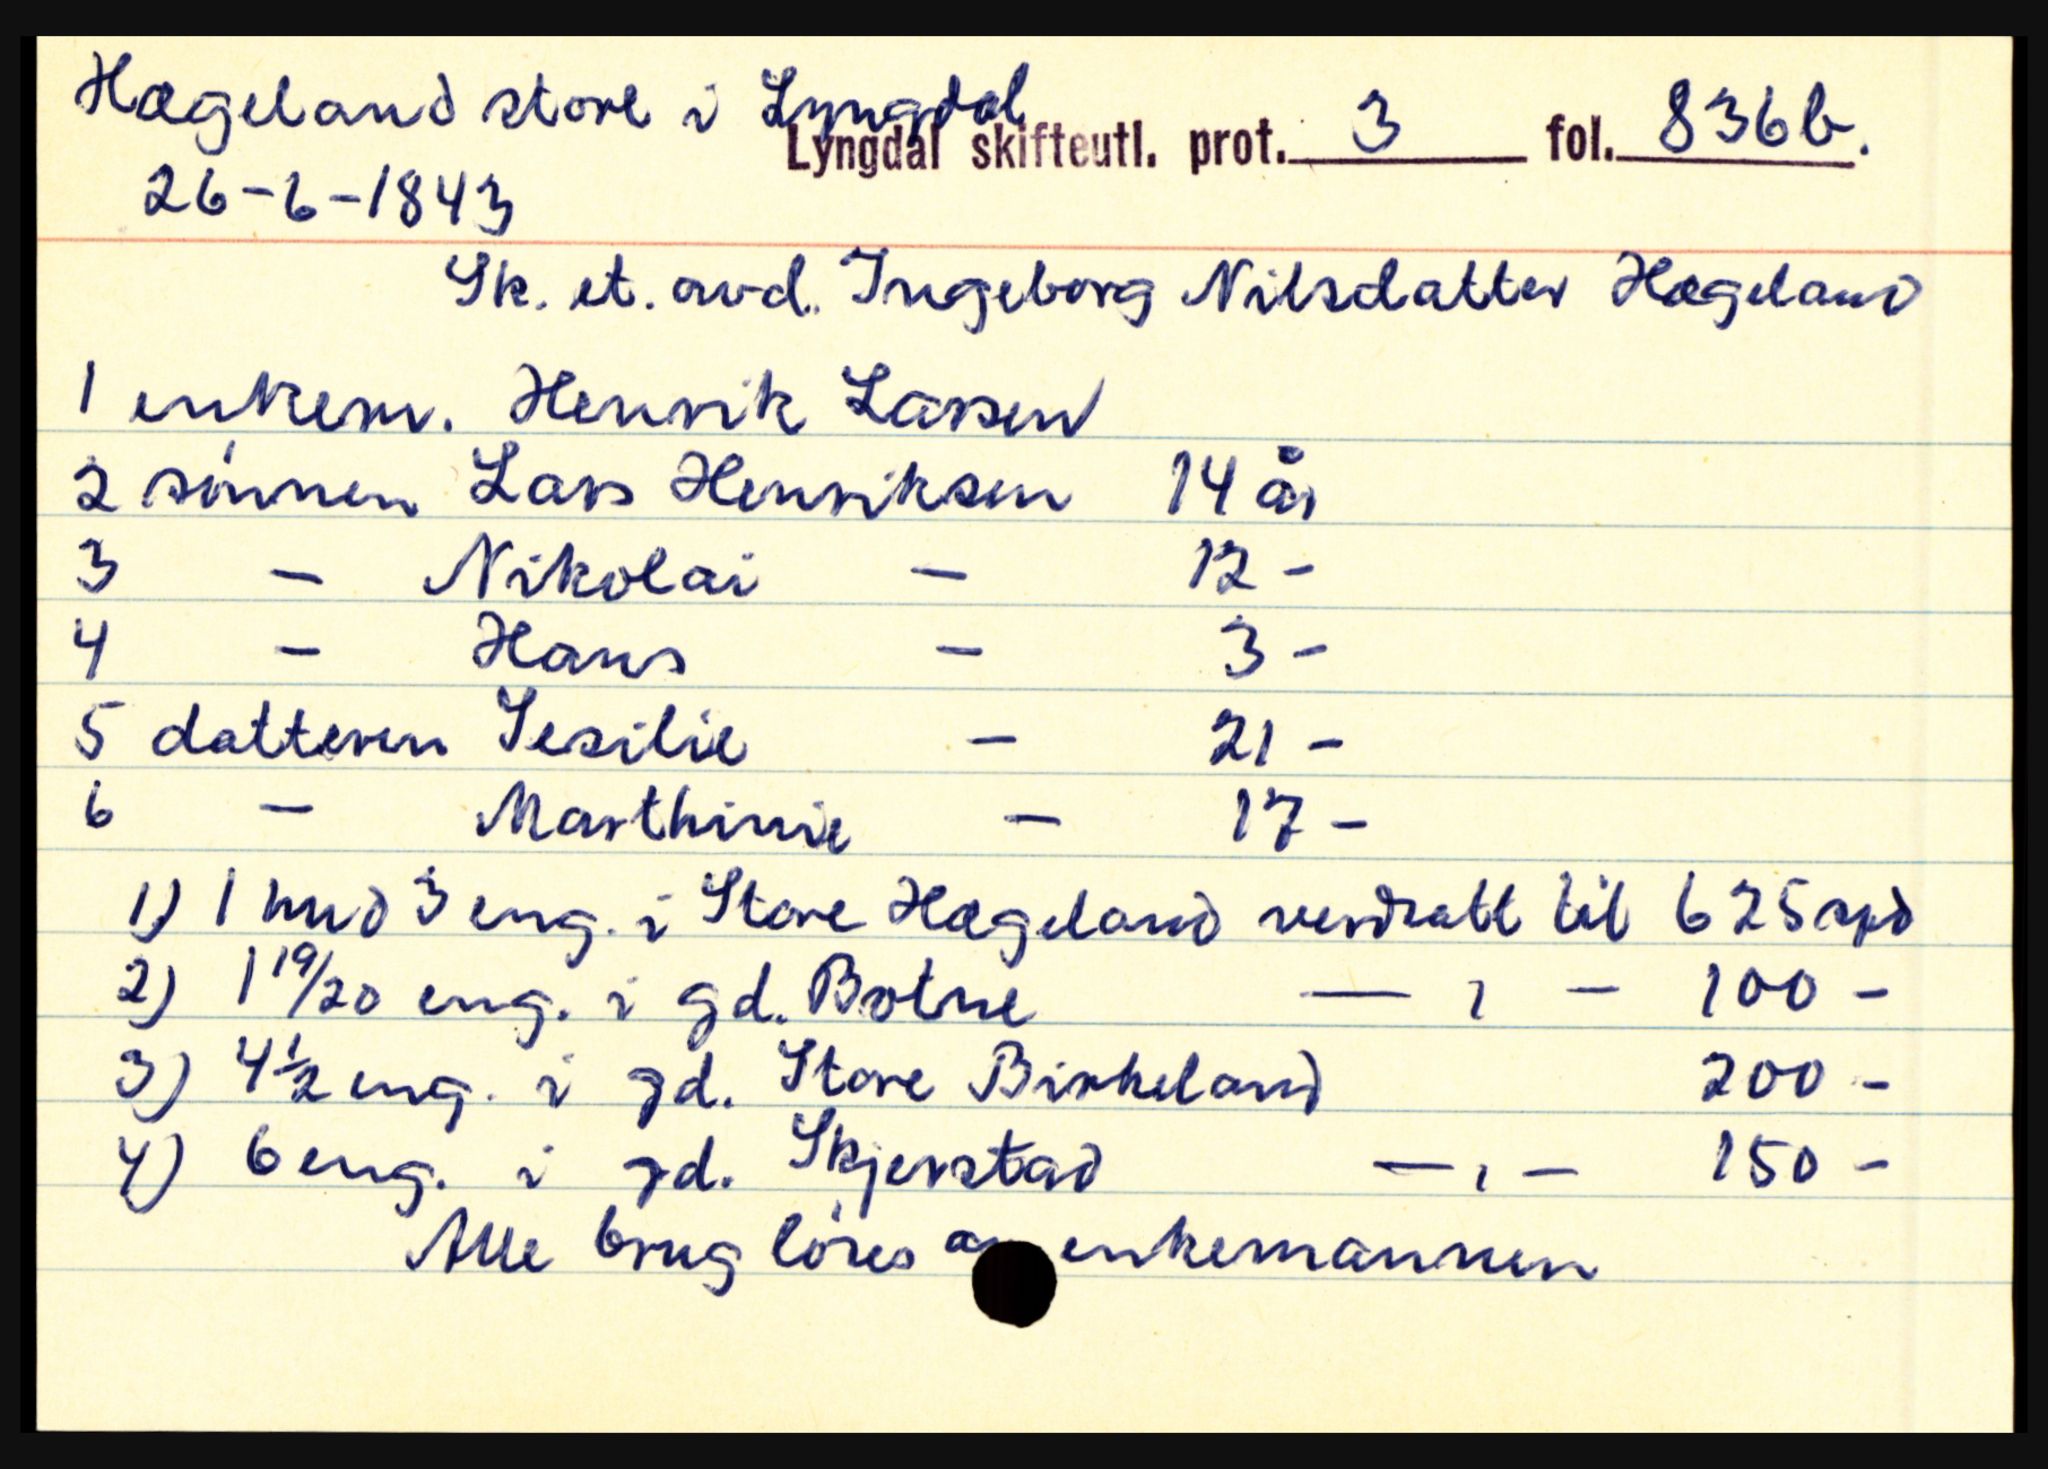 Hægeland store i Lyngdal
Lyngdal skifteutl. prot. 3 fol. 836b.
26-6-1843
Sk. et. avd. Ingeborg Nilsdatter Hægeland
1 enkem. Henrik Larsen
2 sónnen Lars Henriksen 14 år
3 — Nikolai — 12 -
4 — Hans — 3 -
5 datteren Sesilie — 21 -
6 — Marthinie — 17 -
1) 1 hud 3 eng. i Store Hægeland verdsatt til 625 spd
2) 1 19/20 eng. i gd. Botne — ı — 100 -
3) 4 1/2 eng. i gd. Store Birkeland 200 -
4) 6 eng. i gd. Skjerstad — ı — 150 -
Alle brug lóses enkemannen